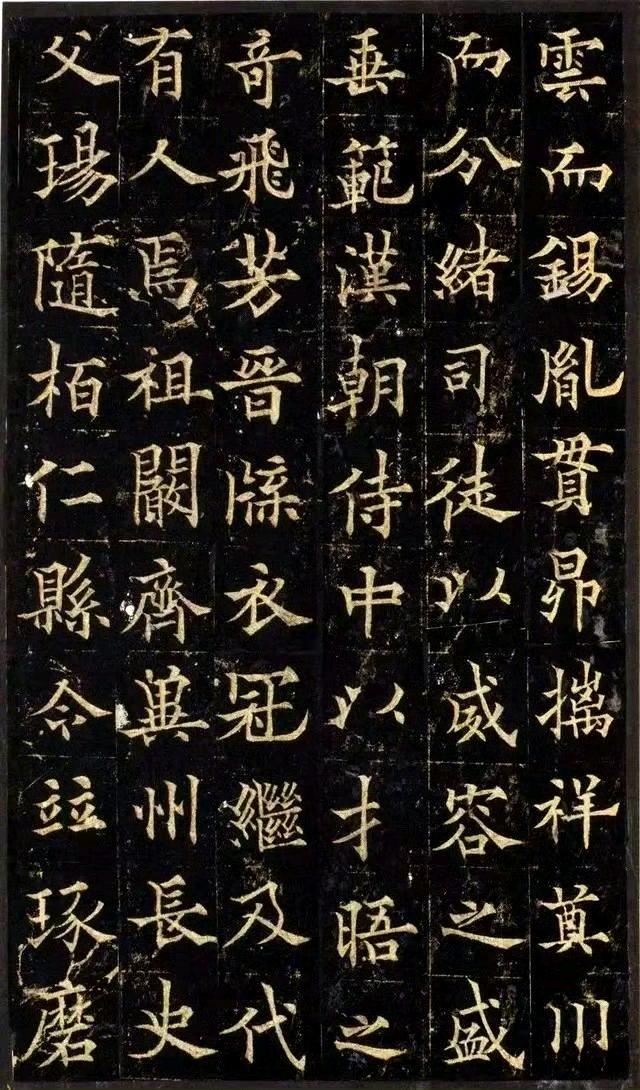 雲而錫胤貫昴攜祥奠川
而分緒司徒以威容之盛
垂範漢朝侍中以才晤之
奇飛芳晉牒衣冠繼及代
有人焉祖嚴齊冀州長史
父瑒隨栢仁縣令竝琢磨